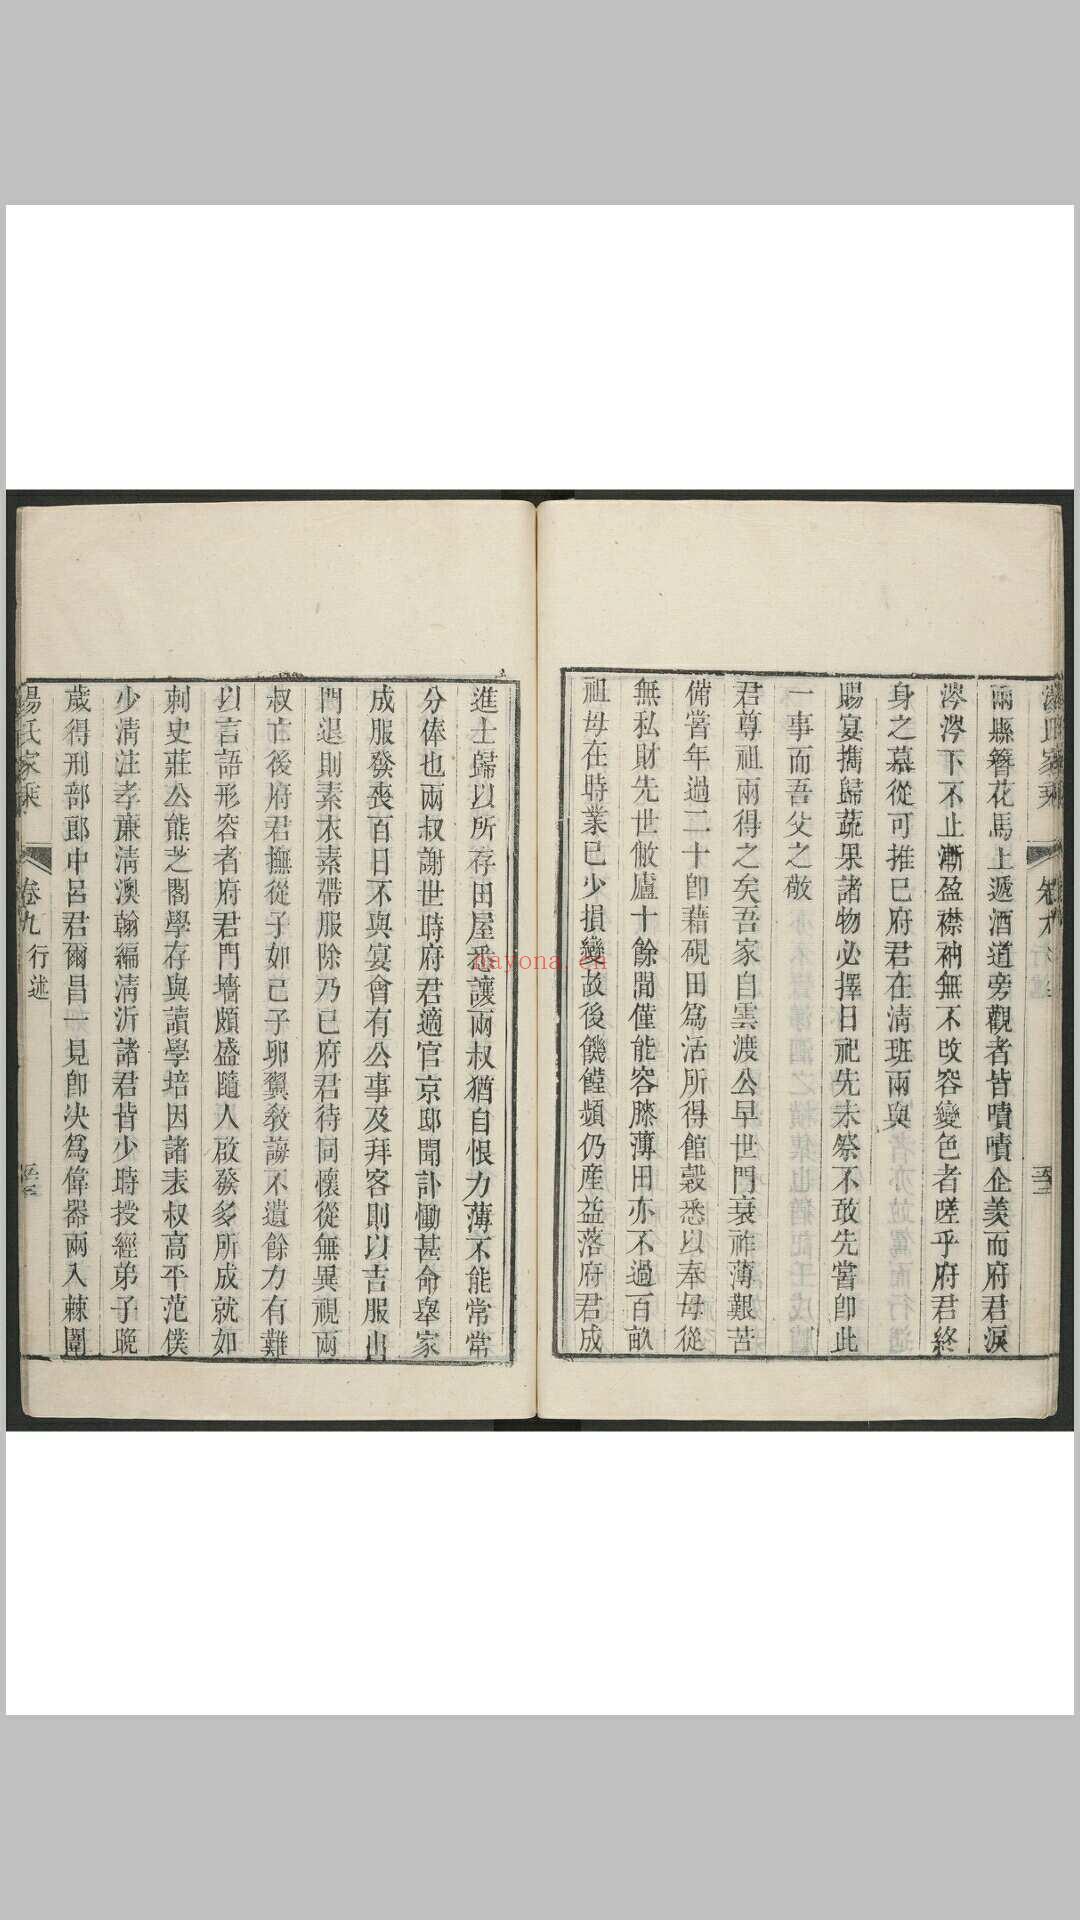 兩縣簪花馬上遞酒道旁觀者皆嘖嘖企羨而府君淚
涔涔下不止漸盈襟袖無不改容變色者嗟乎府君終
身之慕從可推已府君在清班兩與
賜宴擕歸蔬果諸物必擇日祀先未祭不敢先嘗卽此
一事而吾父之敬
君尊祖兩得之矣吾家自雲渡公早世門衰祚薄艱苦
備嘗年過二十卽藉硯田爲活所得館穀悉以奉母從
無私財先世敝廬十餘間僅能容膝薄田亦不過百畝
祖母在時業已少損變故後饑饉頻仍產益落府君成
進士歸以所存田屋悉讓兩叔猶自恨力薄不能常常
分俸也兩叔謝世時府君適官京邸聞訃慟甚命舉家
成服發喪百日不與宴會有公事及拜客則以吉服出
門退則素衣素帶服除乃已府君待同懷從無異視兩
叔亡後府君撫從子如己子卵翼教誨不遺餘力有難
以言語形容者府君門墻頗盛隨人啟發多所成就如
刺史莊公熊芝閣學存與讀學培因諸表叔高平范僕
少清注孝廉清澳翰編清沂諸君皆少時授經弟子晚
歲得刑部郎中呂君爾昌一見卽決爲偉器兩入棘圍
湯氏家乘
卷九
行述
dayona.cn